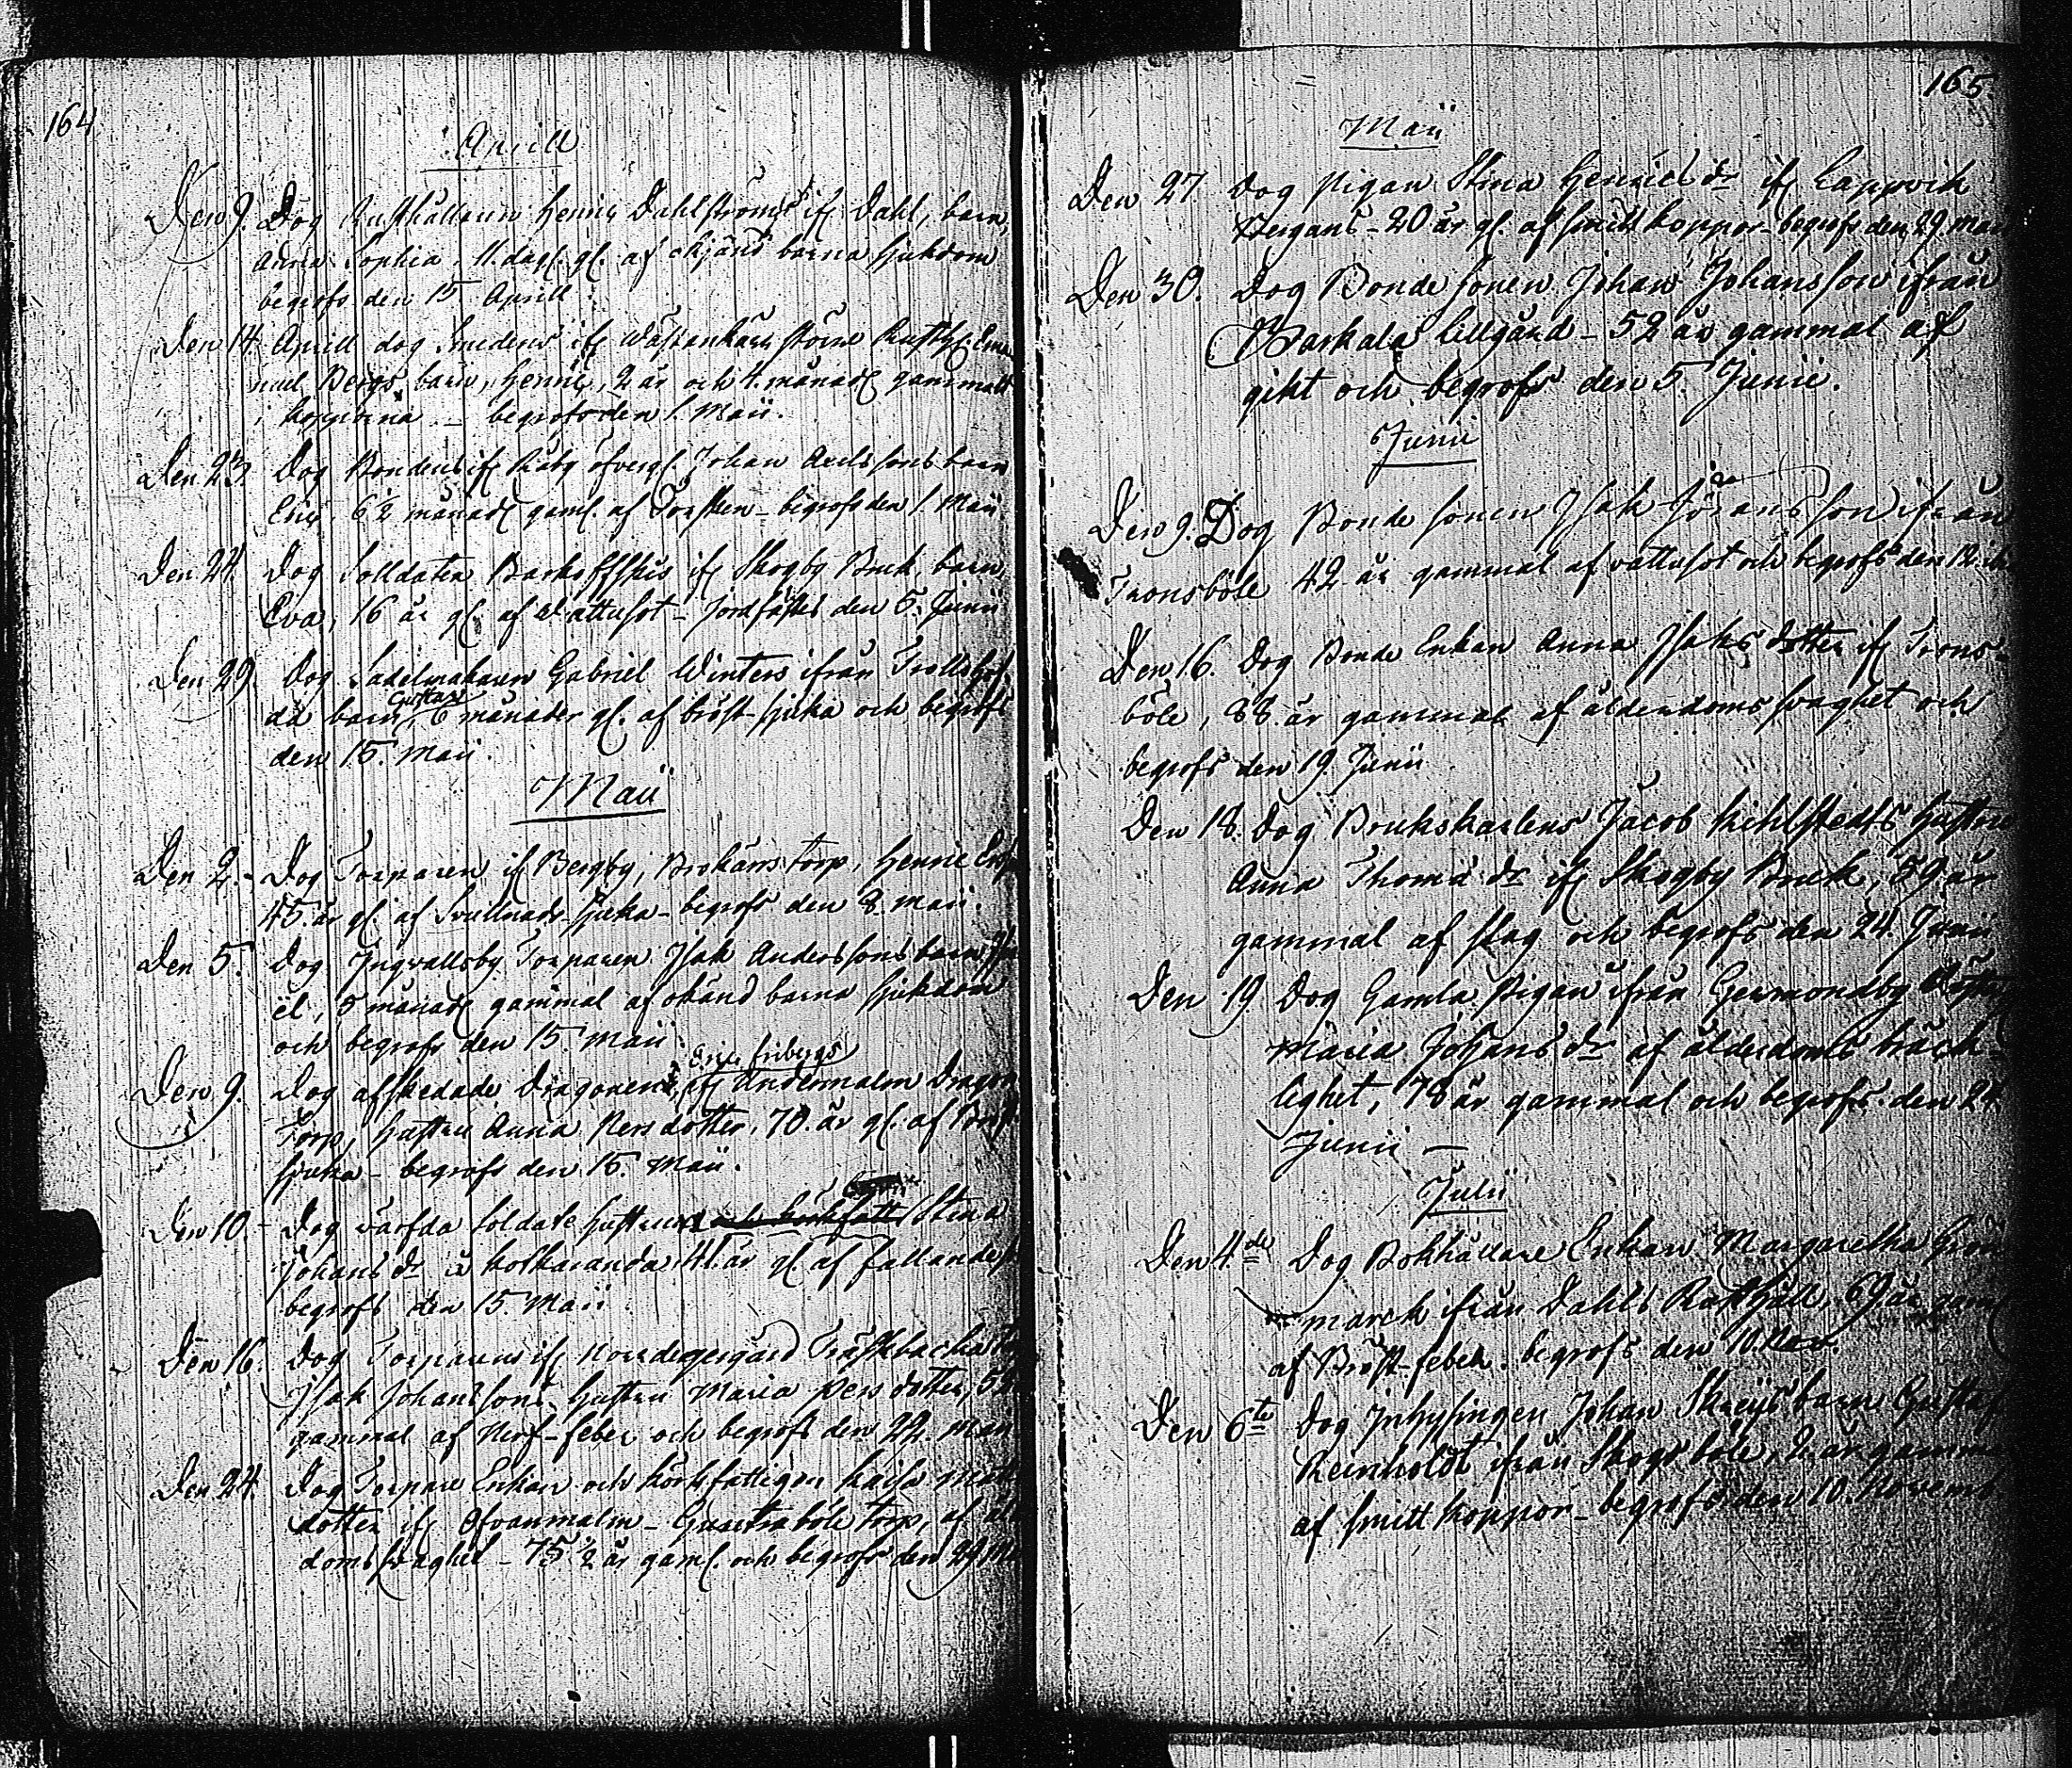 164
Aprill
Den 9. Dog Rusthållaren Henric Dahlströms if Dahl, barn,
Anna Sophia, 11. dag. gl. af okjänd barna sjukdom
begrofs den 15 Aprill.
Den 14. Aprill dog Smedens if Wästankärr större
nuel Bergs barn, Henric, 2 år och 4. månad gammalt
i kopporna – begrofs den 1. Maii.
Den 23. Dog Bondens if Råby öfverg. Johan Axelssons barn
Eric, 6½ månad gaml. af Torsken – begrofs den 1. Maii
Den 24 Dog Solldaten Barkoffskis if Skogby Bruk, barn
Eva, 16 år gl. af Wattusot – jordfästes den 5. Junii
Den 29. Dog Sadelmakaren Gabriel Winters ifrån Trollshof
da barn, Gustav 6 månader gl. af bröst-sjuka och begrofs
den 15. Maii.
Maii
Den 2. Dog Torparen if Bergby, Brokärrs torp, Henric
45. år gl. af Svullnads-sjuka – begrofs den 8. maii.
Den 5. Dog Ingvallsby Torparen Isak Anderssons barn
el, 5 månad gammal af okänd barna sjukdom
och begrofs den 15. Maii.
Den 9. Dog afskedade Dragonens Eric Fribergs if Andersmalm Dragon
Torp, hustru Anna Persdotter, 70. år gl. af Bröst
sjuka – begrofs den 15. Maii.
Den 10. Dog värfda soldate hustrun Stina
Johans dr. 41. år gl. af fallande
begrofs den 15. Maii
Den 16. Dog Torparens if Norrdegergård Träskbacka
Isak Johanssons hustru Maria Persdotter, 52
gammal af Nerf-feber och begrofs den 22. Maii
Den 24. Dog Torpare Enkan och körkfattigen Kaisa Mats
dotter if Ofvanmalm – Gunnarsböle torp, af ål
doms svaghet – 75½ år gaml. och begrofs den 29 Ma
165
Maii
Den 27 Dog Pigan Stina Henrics dr if Lappvik
Bergans – 20 år gl. af smitt koppor – begrofs den 29. Maii
Den 30. Dog Bonde sonen Johan Johansson ifrån
Warkala Lillgård – 52 år gammal af
gikt och begrofs den 5. Junii.
Junii
Den 9. Dog Bonde sonen Isak Göransson ifrån
Tronsböle 42 år gammal af vattusot och begrofs den 12.
Den 16. Dog Bonde Enkan Anna Isaksdotter if Trons-
böle, 88 år gammal af ålderdoms svaghet och
begrofs den 19. Junii
Den 18. Dog Brukskarlens Jacob Kihlstedts hustru
Anna Thomæ dr if Skogby Bruk, 59 år
gammal af slag och begrofs den 24. Junii
Den 19. Dog Gamla Pigan ifrån Germundby
Maria Johans dr af ålderdoms bräck-
lighet, 78 år gammal och begrofs den 24
Junii –
Julii
Den 4.de Dog Bokhållare Enkan Margaretha Grön
march ifrån Dahls Rusthåll, 69 år gaml
af Bröst-feber. begrofs den 10. Nov.
Den 6te Dog Inhysingen Johan Skreijs barn Gustaf
Reinholdt ifrån Skogsböle, 2 år gamm
af smitt koppor – begrofs den 10. Novemb